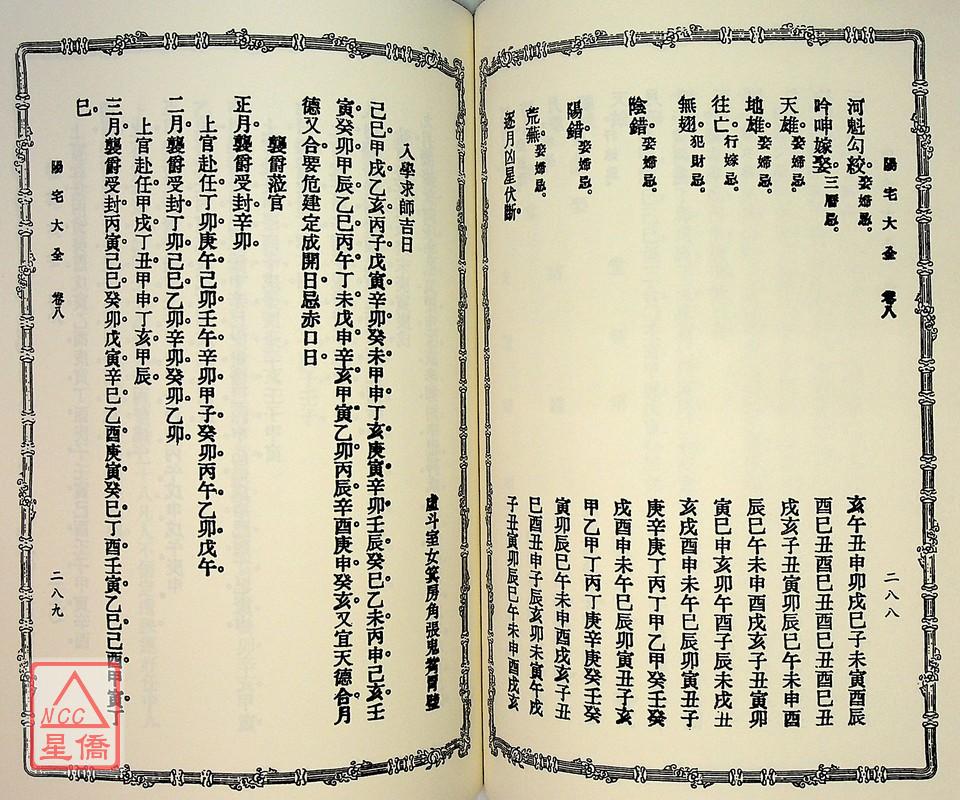 陽宅大全 卷八 二八八
河魁勾絞。娶婦忌。 亥午丑申卯戌巳子未寅酉辰
吟呻嫁娶。三曆忌。 酉巳丑酉巳丑酉巳丑酉巳丑
天雄。娶婦忌。 戌亥子丑寅卯辰巳午未申酉
地雄。娶婦忌。 辰巳午未申酉戌亥子丑寅卯
往亡。行嫁忌。 寅巳申亥卯午酉子辰未戌丑
無翅。犯財忌。 亥戌酉申未午巳辰卯寅丑子
陰錯。娶婦忌。 庚辛庚丁丙丁甲乙甲癸壬癸
戌酉申未午巳辰卯寅丑子亥
陽錯。娶婦忌。 甲乙甲丁丙丁庚辛庚癸壬癸
寅卯辰巳午未申酉戌亥子丑
荒蕪。娶婦忌。 巳酉丑申子辰亥卯未寅午戌
逐月凶星伏斷。 子丑寅卯辰巳午未申酉戌亥
虛斗室女箕房角張鬼觜胃壁
入學求師吉日
己巳甲戌乙亥丙子戊寅辛卯癸未甲申丁亥庚寅辛卯壬辰癸巳乙未丙申己亥壬
寅癸卯甲辰乙巳丙午丁未戊申辛亥甲寅乙卯丙辰辛酉庚申癸亥又宜天德合月
德又合要危建定成開日忌赤口日
襲爵蒞官
正月。襲爵受封辛卯。
上官赴任丁卯庚午己卯壬午辛卯甲子癸卯丙午乙卯戊午
二月。襲爵受封丁卯己巳乙卯辛卯癸卯乙卯
上官赴任甲戌丁丑甲申丁亥甲辰
三月。襲爵受封丙寅己巳癸卯戊寅辛巳乙酉庚寅癸巳丁酉壬寅乙巳己酉甲寅丁
巳。
陽宅大全 卷八 二八九
NCC
星僑